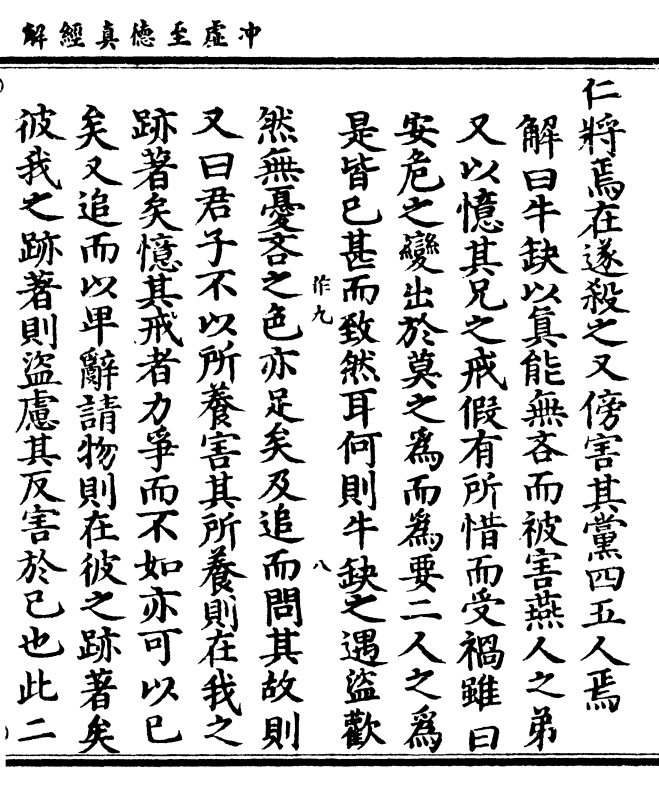 冲虛至德真經解
仁將焉在遂殺之又傍害其黨四五人焉
解曰牛缺以真能無吝而被害燕人之弟
又以憶其兄之戒假有所惜而受禍雖曰
安危之變出於莫之為而為要二人之為
是皆已甚而致然耳何則牛缺之遇盜歡
作九
八
然無憂吝之色亦足矣及追而問其故則
又曰君子不以所養害其所養則在我之
跡著矣憶其戒者力爭而不如亦可以已
矣又追而以卑辭請物則在彼之跡著矣
彼我之跡著則盜慮其反害於已也此二